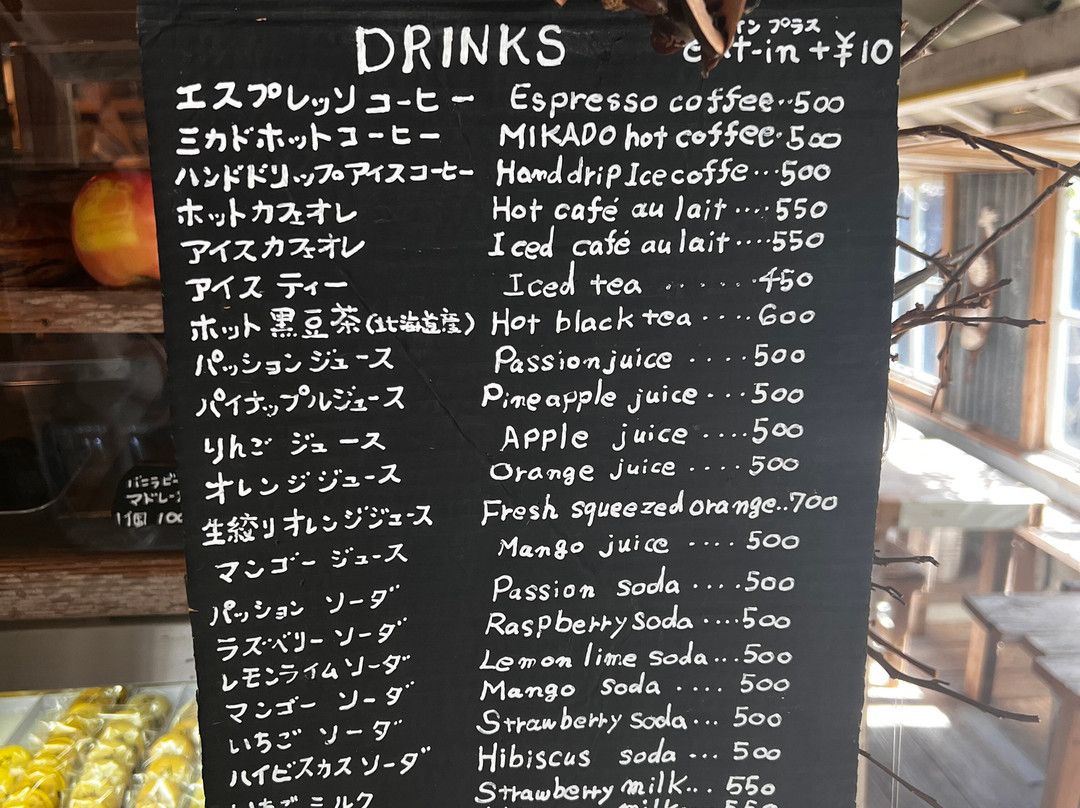 DRINKS
イン プラス
eat-in +¥10
エスプレッソコーヒー Espresso coffee..500
ミカドホットコーヒー MIKADO hot coffee.500
ハンドドリップアイスコーヒー Hand drip Ice coffe...500
ホットカフェオレ Hot café au lait....550
アイスカフェオレ Iced café au lait....550
アイス ティー Iced tea ......450
ホット黒豆茶(北海道産) Hot black tea....600
パッションジュース Passion juice ....500
パイナップルジュース Pineapple juice...500
りんご ジュース Apple juice ....500
オレンジジュース Orange juice ....500
生絞りオレンジジュース Fresh squeezed orange..700
マンゴー ジュース Mango juice ....500
パッション ソーダ Passion soda ....500
ラズベリー ソーダ Raspberry soda....500
レモンライムソーダ Lemon lime soda...500
マンゴー ソーダ Mango soda ....500
いちご ソーダ Strawberry soda...500
ハイビスカスソーダ Hibiscus soda ...500
いちごミルク Strawberry milk...550
milk
バニラビ
マドレー
1個 100